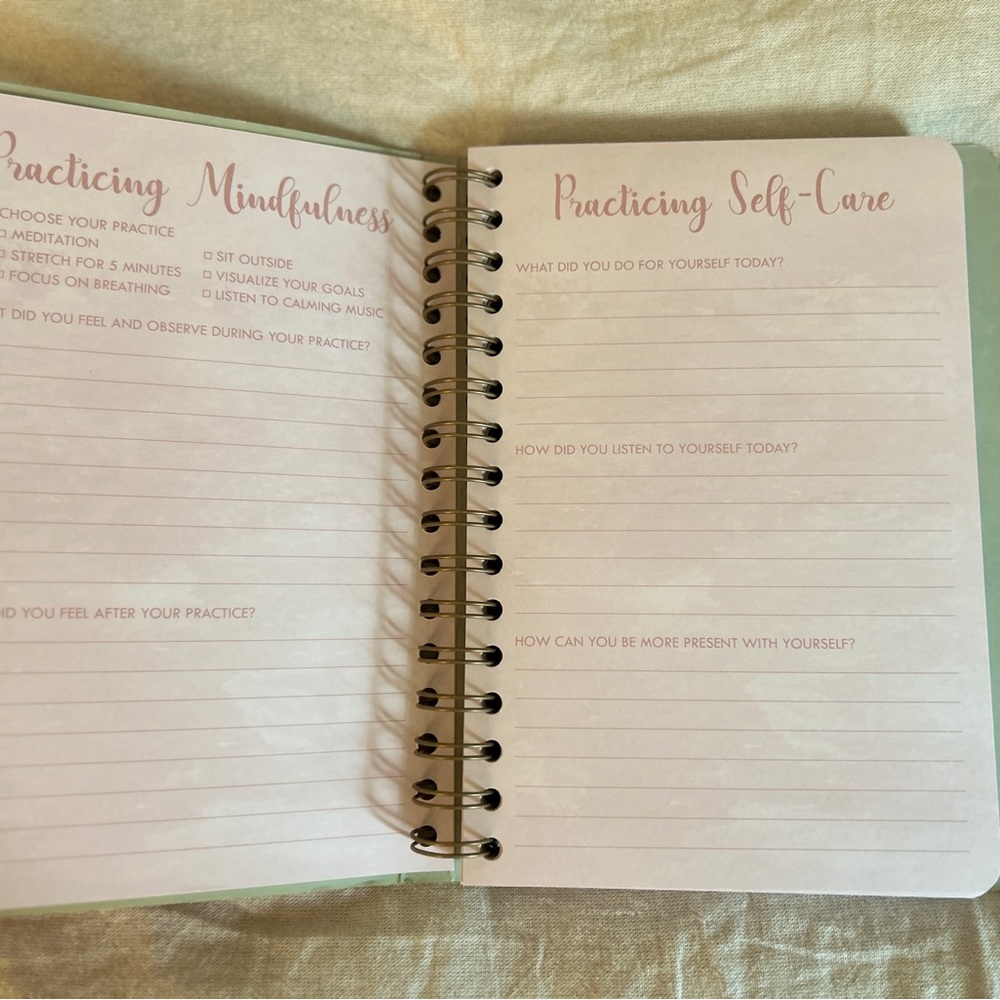 Practicing Mindfulness
CHOOSE YOUR PRACTICE
MEDITATION
STRETCH FOR 5 MINUTES
FOCUS ON BREATHING
SIT OUTSIDE
VISUALIZE YOUR GOALS
LISTEN TO CALMING MUSIC
T DID YOU FEEL AND OBSERVE DURING YOUR PRACTICE?
ID YOU FEEL AFTER YOUR PRACTICE?
Practicing Self-Care
WHAT DID YOU DO FOR YOURSELF TODAY?
HOW DID YOU LISTEN TO YOURSELF TODAY?
HOW CAN YOU BE MORE PRESENT WITH YOURSELF?